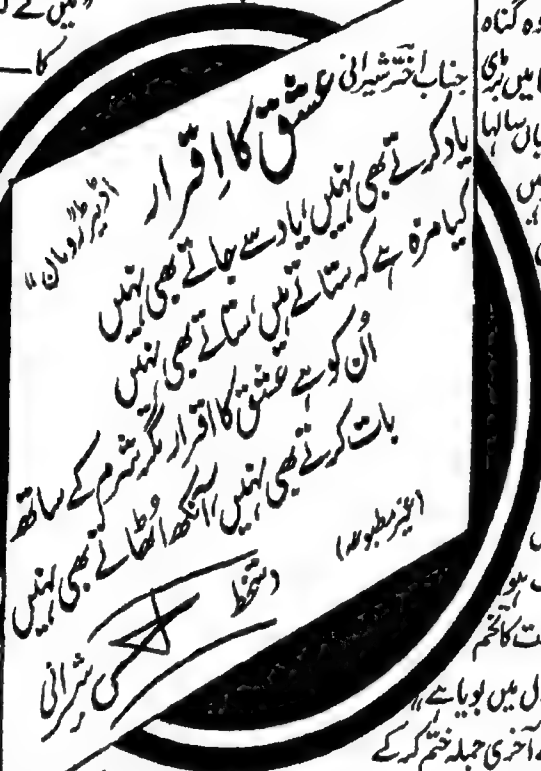 جناب اختر شیرانی
عشق کا اِقرار
اڈیٹر "رومان"
یاد کرتے بھی نہیں، یاد سے جاتے بھی نہیں
کیا مزہ ہے کہ ستاتے ہیں، ستاتے بھی نہیں
اُن کو ہے عشق کا اقرار مگر شرم کے ساتھ
بات کرتے بھی نہیں، آنکھ اُٹھاتے بھی نہیں
(غیر مطبوعہ)
دستخط
شیرانی
وہ گناہ
میں بڑی
سالہا
ہیں
ہو
کا تخم
دل میں بویا ہے"
آخری جملہ ختم کر کے